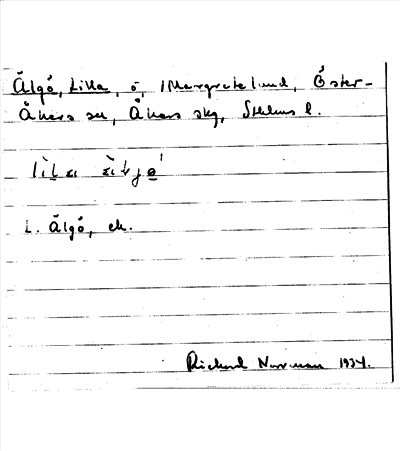 Älgö, Lilla, ö, i Margretelund, Öster-
Åkers sn, Åkers skg, Sthlms l.
L. Älgö, ek.
Rickard Norrman 1934.